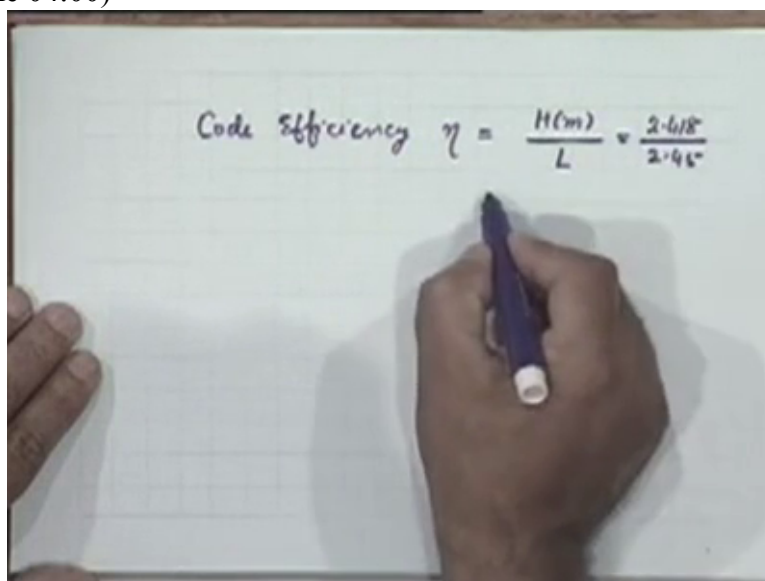 04:00)
Code Efficiency η = H(m) / L = 2.418 / 2.45